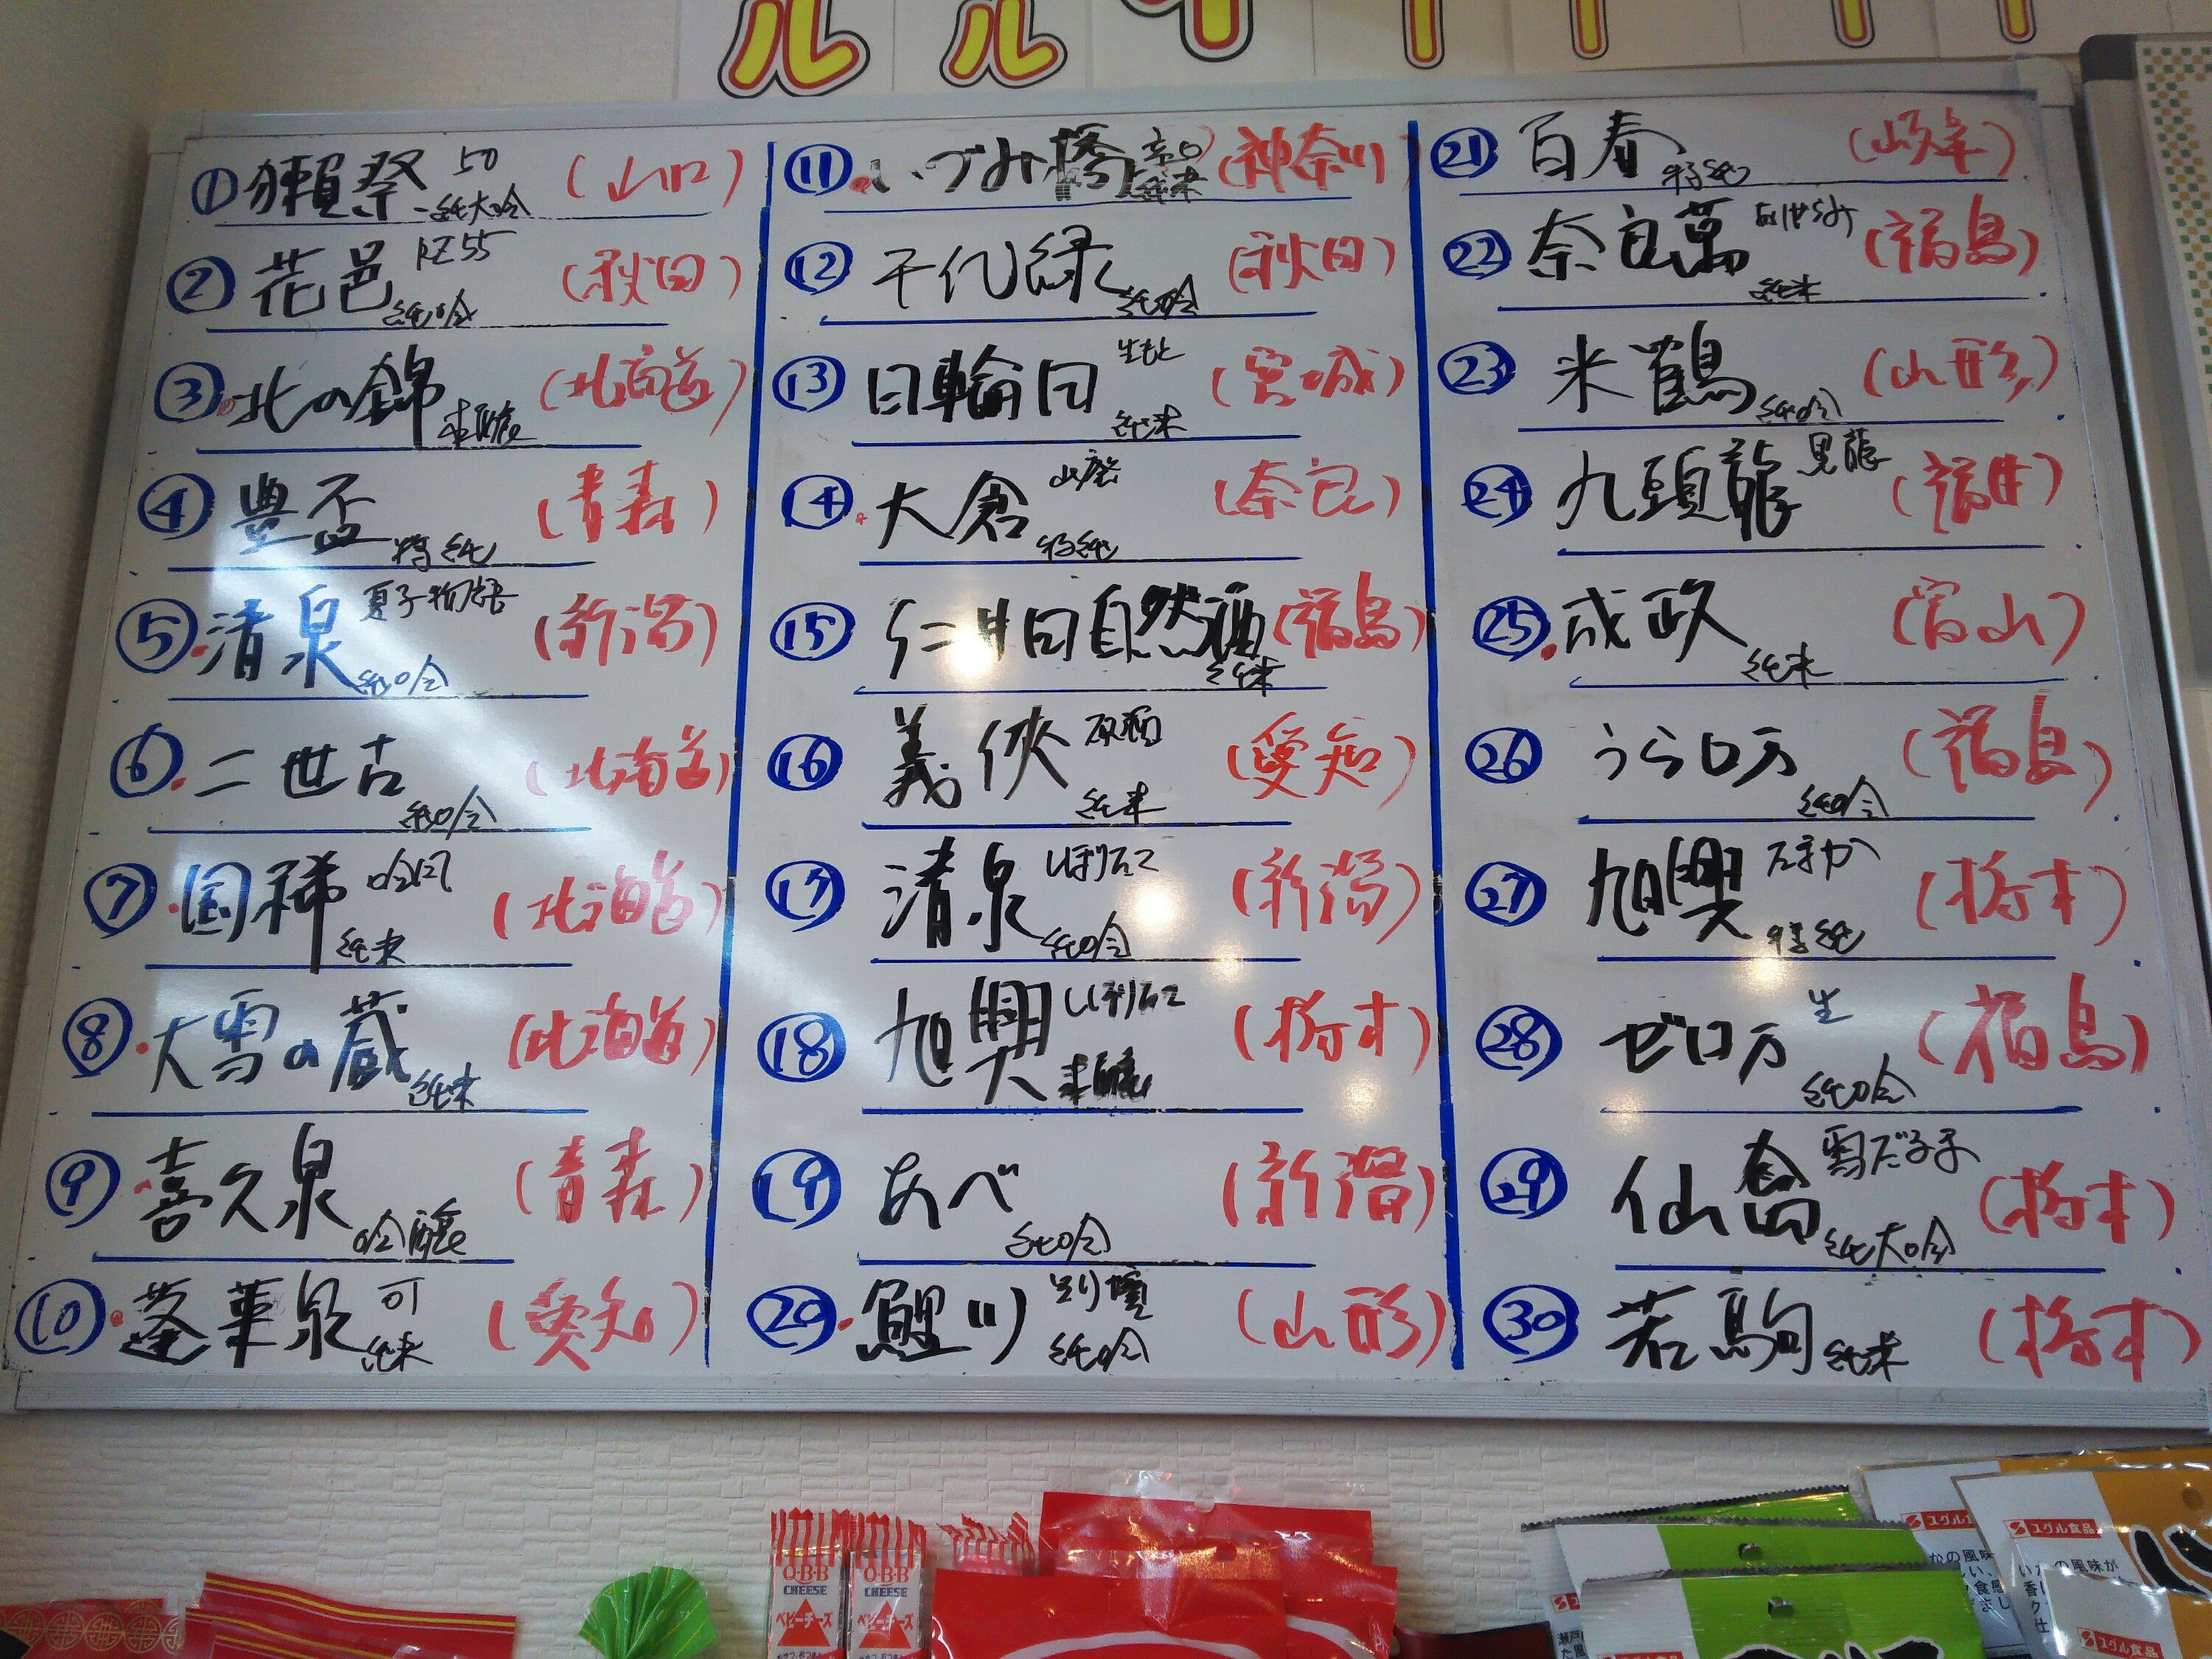 ①獺祭 50 純大吟 (山口)
②花邑 RZ55 純吟 (秋田)
③北の錦 本醸 (北海道)
④豊盃 特純 (青森)
⑤清泉 夏子物語 純吟 (新潟)
⑥二世古 純吟 (北海道)
⑦国稀 吟風 純米 (北海道)
⑧大雪の蔵 純米 (北海道)
⑨喜久泉 吟醸 (青森)
⑩蓬莱泉 可 純米 (愛知)
⑪いづみ橋 辛口 純米 (神奈川)
⑫千代緑 純吟 (秋田)
⑬日輪田 生もと 純米 (宮城)
⑭大倉 山廃 特純 (奈良)
⑮仁井田自然酒 純米 (福島)
⑯義侠 原酒 純米 (愛知)
⑰清泉 しぼりたて 純吟 (新潟)
⑱旭興 しぼりたて 本醸 (栃木)
⑲あべ 純吟 (新潟)
⑳鯉川 別嬪 純吟 (山形)
㉑百春 特純 (岐阜)
㉒奈良萬 純米 (福島)
㉓米鶴 純吟 (山形)
㉔九頭龍 黒龍 (福井)
㉕成政 純米 (富山)
㉖うらロ万 純吟 (福島)
㉗旭興 たまか 特純 (栃木)
㉘ゼロ万 生 純吟 (福島)
㉙仙禽 雪だるま 純大吟 (栃木)
㉚若駒 純米 (栃木)
Q・B・B
CHEESE
ベビーチーズ
Q・B・B
CHEESE
ベビーチーズ
スグル食品
スグル食品
スグル食品
の風味が